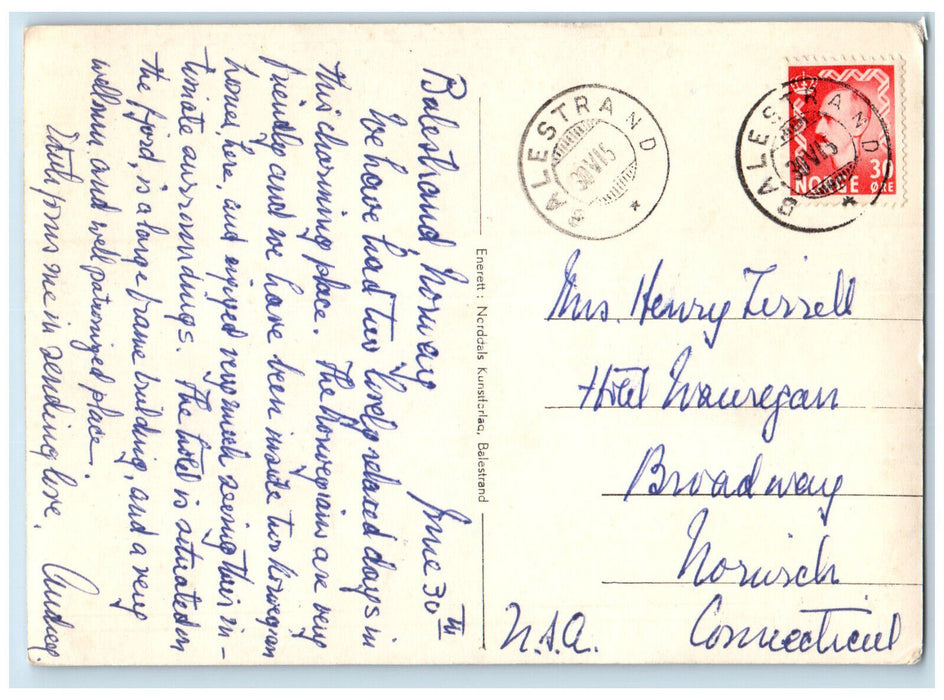 Balestrand, Norway
June 30th
We have had two lovely relaxed days in
this charming place. The Norwegians are very
friendly and we have been inside two Norwegian
homes, here, and enjoyed very much seeing their in-
timate surroundings. The hotel is situated on
the fjord, is a large frame building, and a very
well run, and well patronized place.
joins me in sending love, Audrey.
Enerett: Norddals Kunstforlag, Balestrand
BALESTRAND
30 VI 5
BALESTRAND
30 VI 5
NORGE
30
ØRE
Mrs. Henry Tirrell
Hotel Wauregan
Broadway
Norwich
Connecticut
U.S.A.